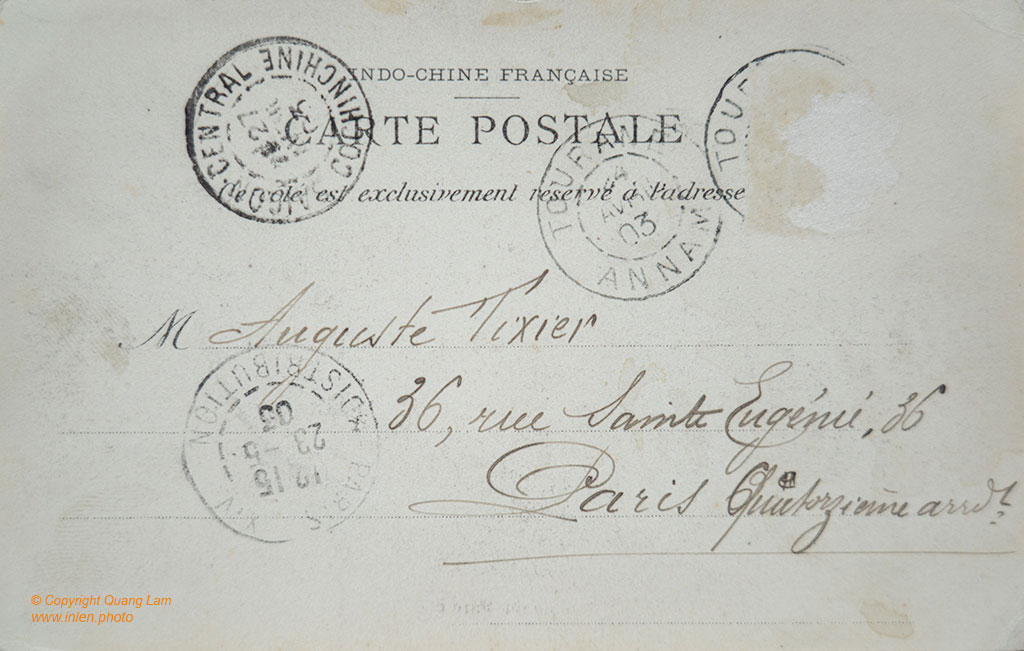 INDO-CHINE FRANÇAISE
CARTE POSTALE
Ce côté est exclusivement réservé à l'adresse
CENTRAL COCHINCHINE
27
TOURANE
AVRIL
03
ANNAM
TOUR
M Auguste Tixier
36, rue Sainte Eugénie, 36
Paris Quatorzième arrdt.
PARIS XIV
DISTRIBUTION
12 15
23 -5
03
© Copyright Quang Lam
www.inien.photo